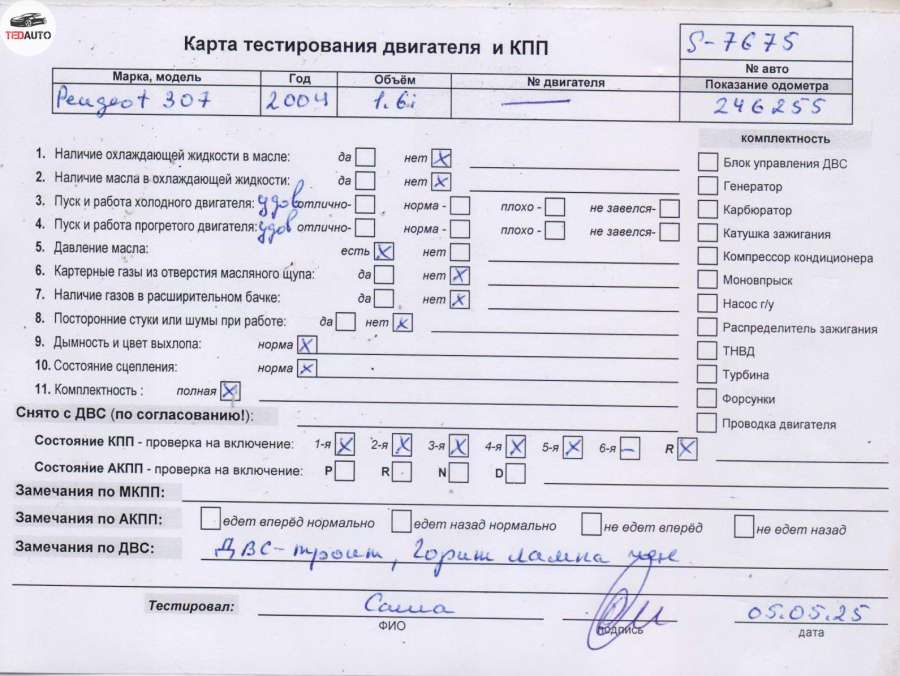 TEDAUTO
Карта тестирования двигателя и КПП
S-7675
№ авто
Марка, модель Год Объём № двигателя Показание одометра
Peugeot 307 2004 1.6i — 246255
комплектность
1. Наличие охлаждающей жидкости в масле: да нет x
2. Наличие масла в охлаждающей жидкости: да нет x
3. Пуск и работа холодного двигателя: удов отлично- норма - плохо - не завелся-
4. Пуск и работа прогретого двигателя: удов отлично- норма - плохо - не завелся-
5. Давление масла: есть x нет
6. Картерные газы из отверстия масляного щупа: да нет x
7. Наличие газов в расширительном бачке: да нет x
8. Посторонние стуки или шумы при работе: да нет x
9. Дымность и цвет выхлопа: норма x
10. Состояние сцепления: норма x
11. Комплектность : полная x
Блок управления ДВС
Генератор
Карбюратор
Катушка зажигания
Компрессор кондиционера
Моновпрыск
Насос г/у
Распределитель зажигания
ТНВД
Турбина
Форсунки
Проводка двигателя
Снято с ДВС (по согласованию!):
Состояние КПП - проверка на включение: 1-я x 2-я x 3-я x 4-я x 5-я x 6-я – R x
Состояние АКПП - проверка на включение: P R N D
Замечания по МКПП:
Замечания по АКПП: едет вперёд нормально едет назад нормально не едет вперёд не едет назад
Замечания по ДВС: ДВС-троит, Горит лампа
Тестировал: Саша 05.05.25
ФИО подпись дата